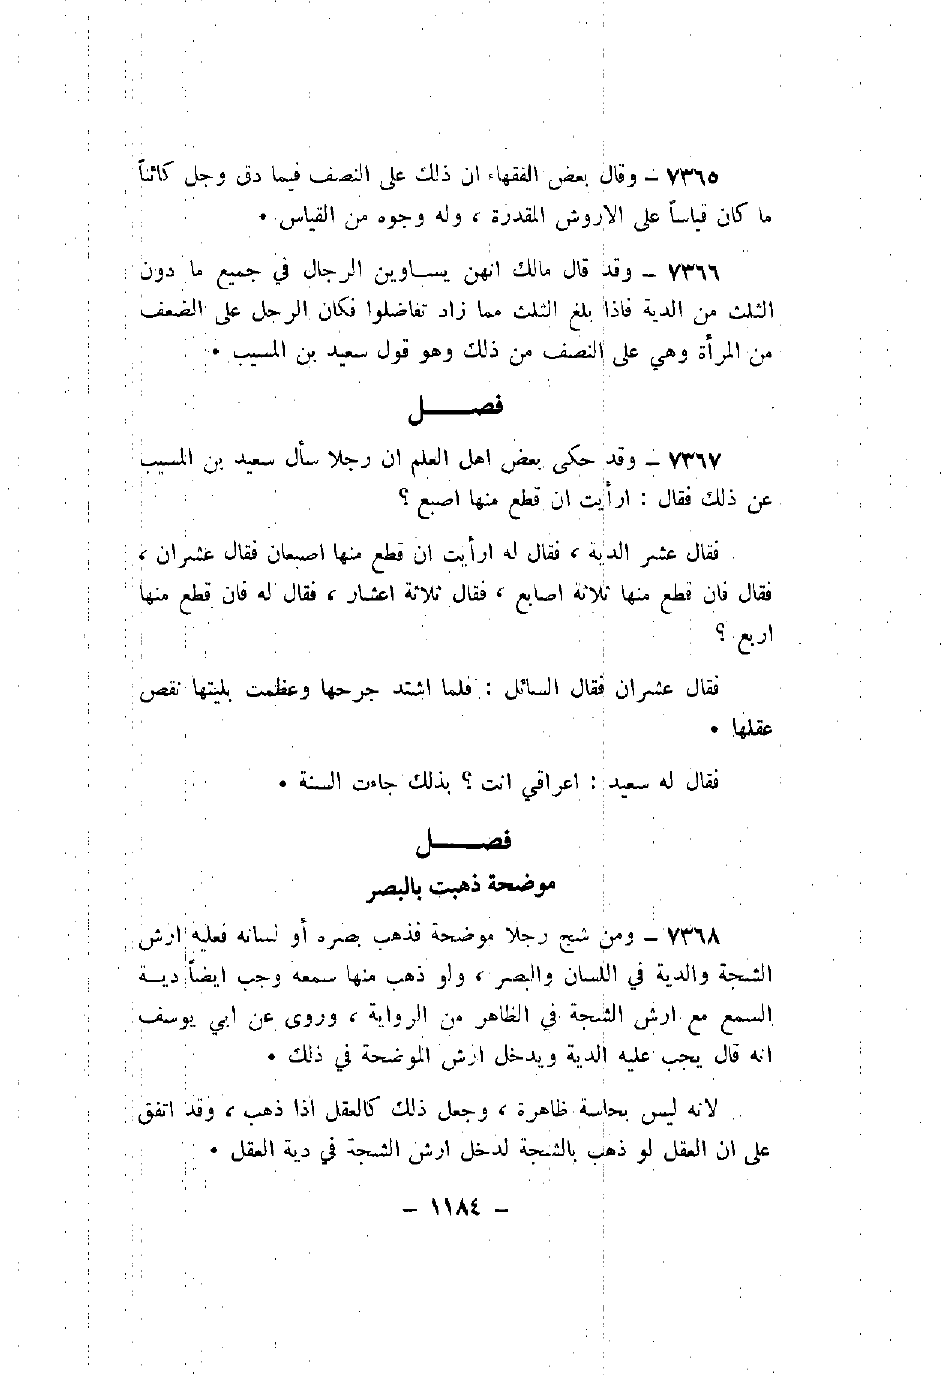 ٧٣٦٥ – وقال بعض الفقهاء ان ذلك على النصف فيما دق وجل كائناً
ما كان قياساً على الاروش المقدرة ، وله وجوه من القياس •
٧٣٦٦ – وقد قال مالك انهن يساوين الرجال في جميع ما دون
الثلث من الدية فاذا بلغ الثلث مما زاد تفاضلوا فكان الرجل على الضعف
من المرأة وهي على النصف من ذلك وهو قول سعيد بن المسيب •
فصل
٧٣٦٧ – وقد حكى بعض اهل العلم ان رجلا سأل سعيد بن المسيب
عن ذلك فقال : ارأيت ان قطع منها اصبع ؟
فقال عشر الدية ، فقال له ارأيت ان قطع منها اصبعان فقال عشران ،
فقال فان قطع منها ثلاثة اصابع ، فقال ثلاثة اعشار ، فقال له فان قطع منها
اربع ؟
فقال عشران فقال السائل : فلما اشتد جرحها وعظمت بليتها نقص
عقلها •
فقال له سعيد : اعراقي انت ؟ بذلك جاءت السنة •
فصل
موضحة ذهبت بالبصر
٧٣٦٨ – ومن شج رجلا موضحة فذهب بصره أو لسانه فعليه ارش
الشجة والدية في اللسان والبصر ، ولو ذهب منها سمعه وجب ايضاً دية
السمع مع ارش الشجة في الظاهر من الرواية ، وروى عن ابي يوسف
انه قال يجب عليه الدية ويدخل ارش الموضحة في ذلك •
لانه ليس بحاسة ظاهرة ، وجعل ذلك كالعقل اذا ذهب ، وقد اتفق
على ان العقل لو ذهب بالشجة لدخل ارش الشجة في دية العقل •
– ١١٨٤ –